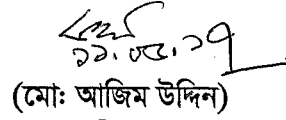 ১১.০৫.১৭
(মোঃ আজিম উদ্দিন)